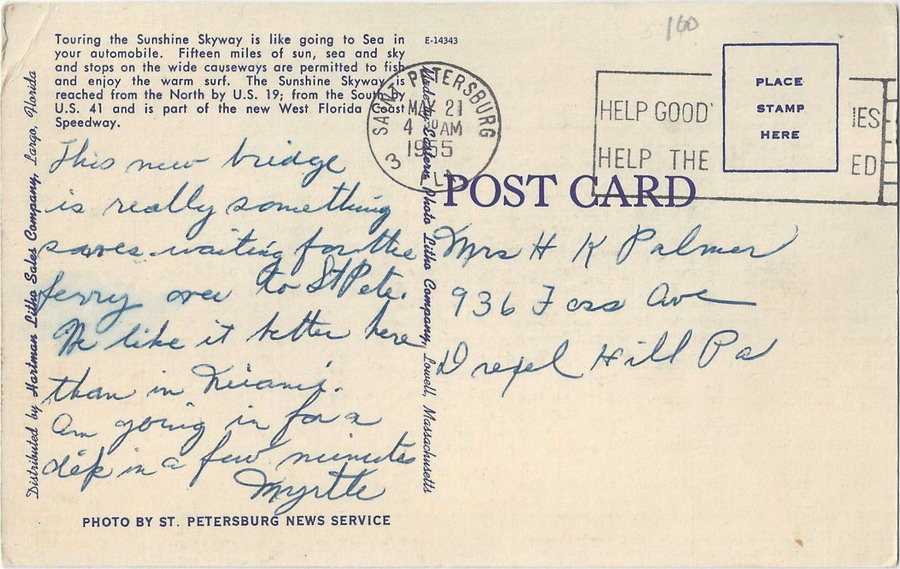 Touring the Sunshine Skyway is like going to Sea in
your automobile. Fifteen miles of sun, sea and sky
and stops on the wide causeways are permitted to fish
and enjoy the warm surf. The Sunshine Skyway is
reached from the North by U.S. 19; from the South by
U.S. 41 and is part of the new West Florida Coast
Speedway.
E-14343
160
This new bridge
is really something
saves waiting for the
ferry over to St Pete.
We like it better here
than in Miami.
Am going in for a
dip in a few minutes
Myrtle
PHOTO BY ST. PETERSBURG NEWS SERVICE
Distributed by Hartman Litho Sales Company, Largo, Florida
Eastern Photo Litho Company, Lowell, Massachusetts
SAINT PETERSBURG
MAY 21
4 AM
1955
3
FL
HELP GOOD IES
HELP THE ED
PLACE
STAMP
HERE
POST CARD
Mrs H K Palmer
936 Foss Ave
Drexel Hill Pa